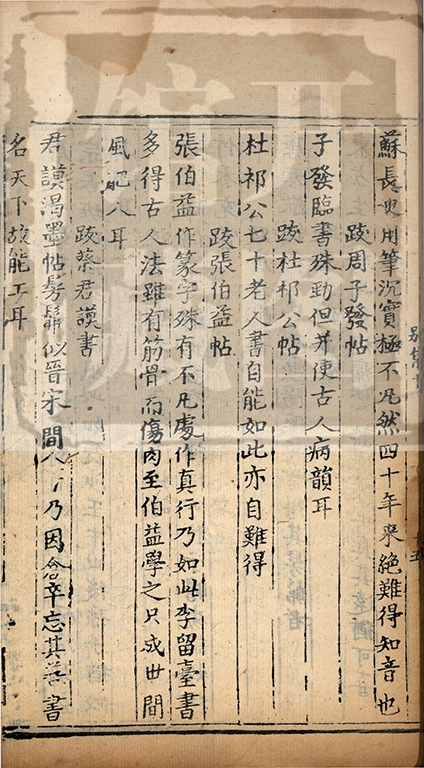 蘇長史用筆沉實極不凡然四十年来絶難得知音也
跋周子發帖
子發臨書殊勁但并使古人病韻耳
跋杜祁公帖
杜祁公七十老人書自能如此亦自難得
跋張伯益帖
張伯益作篆字殊有不凡處作真行乃如此李留臺書
多得古人法雖有筋骨而傷肉至伯益學之只成世間
風肥人耳
跋蔡君謨書
君謨渴墨帖髣髴似晉宋間人書乃因倉卒忘其善書
名天下故能工耳